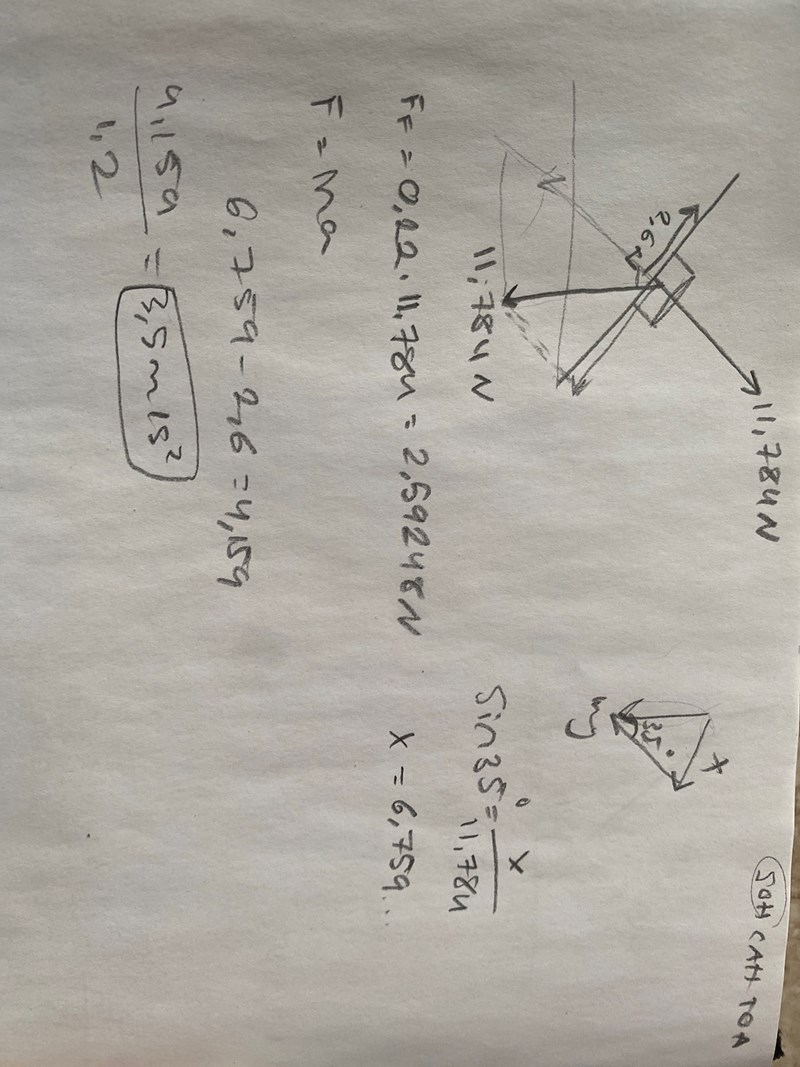 SOH CAH TOA
11,784N
2,6
x
35°
mg
11,784N
sin35° = x / 11,784
FF = 0,22 · 11,784 = 2,59248N
x = 6,759...
F = ma
6,759 - 2,6 = 4,159
4,159 / 1,2 = 3,5m/s²